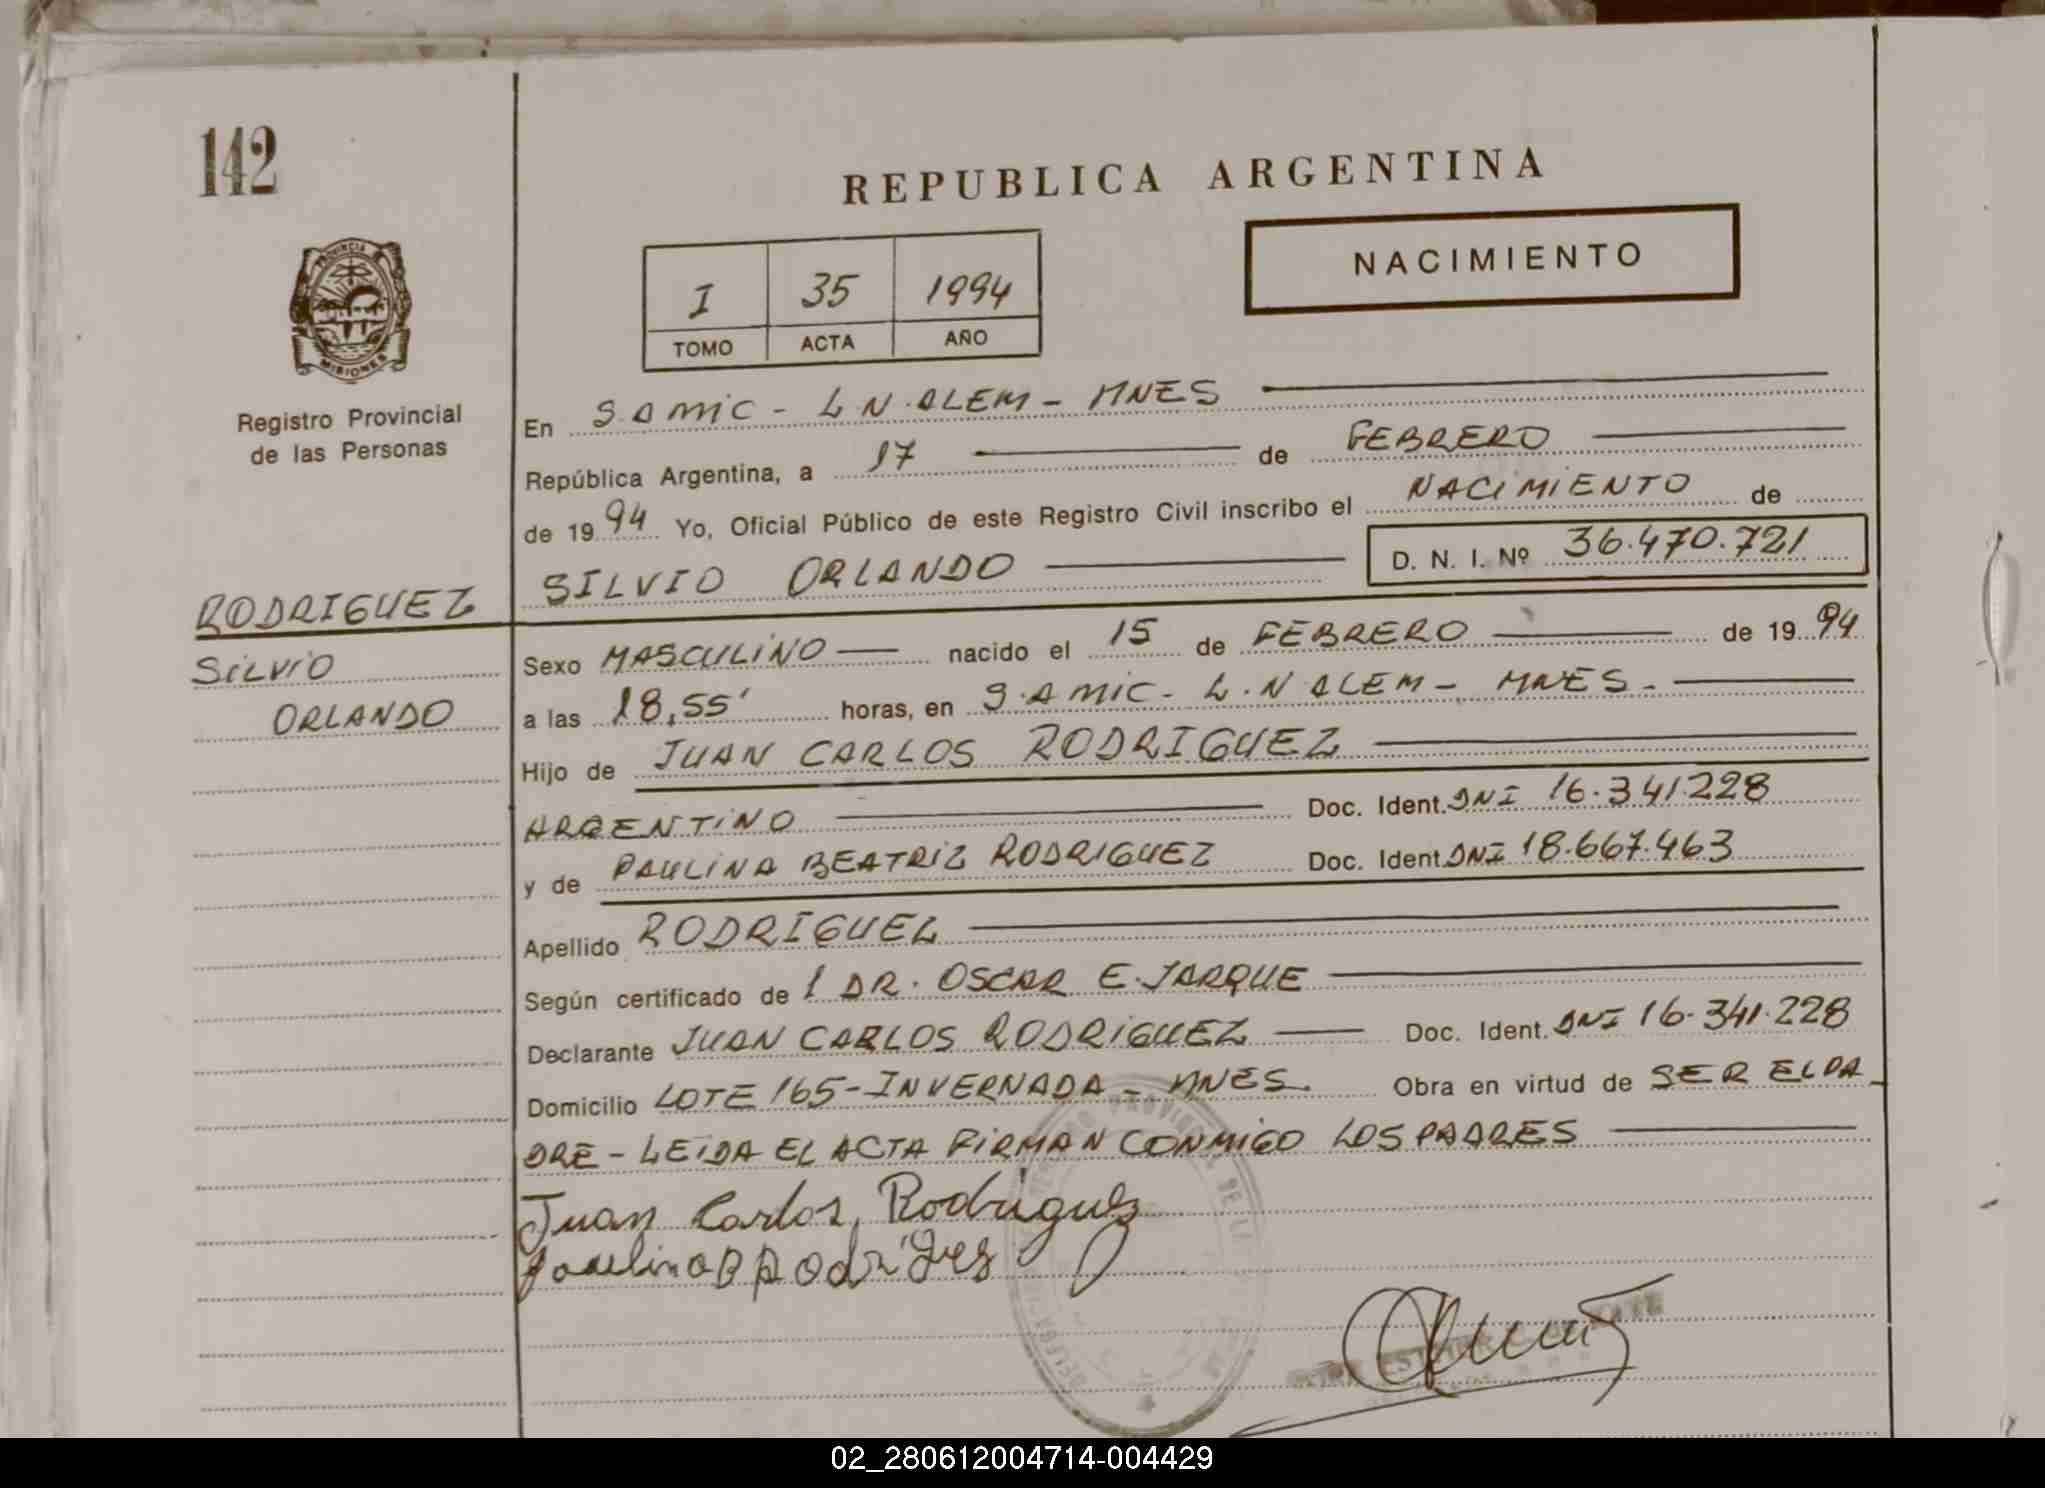 142
REPUBLICA ARGENTINA
NACIMIENTO
PROVINCIA
MISIONES
Registro Provincial
de las Personas
I 35 1994
TOMO ACTA AÑO
En S.A MIC - L.N.ALEM - MNES
República Argentina, a 17 de FEBRERO
de 1994 Yo, Oficial Público de este Registro Civil inscribo el NACIMIENTO de
SILVIO ORLANDO D. N. I. Nº 36.470.721
RODRIGUEZ
SILVIO
ORLANDO
Sexo MASCULINO nacido el 15 de FEBRERO de 1994
a las 18,55' horas, en S.A MIC - L.N ALEM - MNES -
Hijo de JUAN CARLOS RODRIGUEZ
ARGENTINO Doc. Ident. DNI 16.341.228
y de PAULINA BEATRIZ RODRIGUEZ Doc. Ident. DNI 18.667.463
Apellido RODRIGUEZ
Según certificado de 1 DR. OSCAR E. JARQUE
Declarante JUAN CARLOS RODRIGUEZ Doc. Ident. DNI 16.341.228
Domicilio LOTE 165 - INVERNADA - MNES. Obra en virtud de SER EL PA_
DRE - LEIDA EL ACTA FIRMAN CONMIGO LOS PADRES
Juan Carlos Rodriguez
02_280612004714-004429